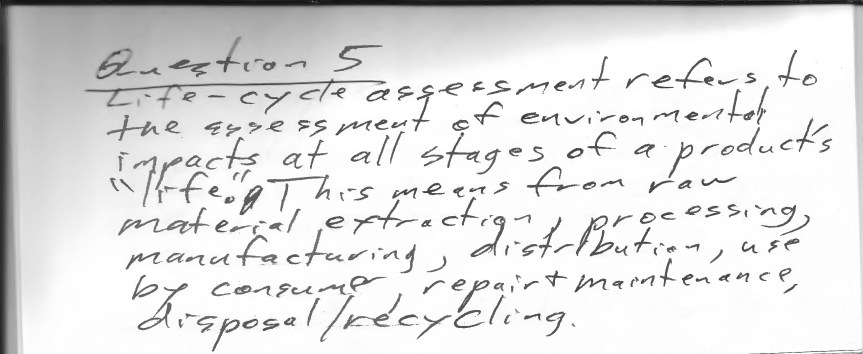 Question 5
Life-cycle assessment refers to
the assessment of environmental
impacts at all stages of a product's
"life." This means from raw
material extraction, processing,
manufacturing, distribution, use
by consumer, repair + maintenance,
disposal/recycling.